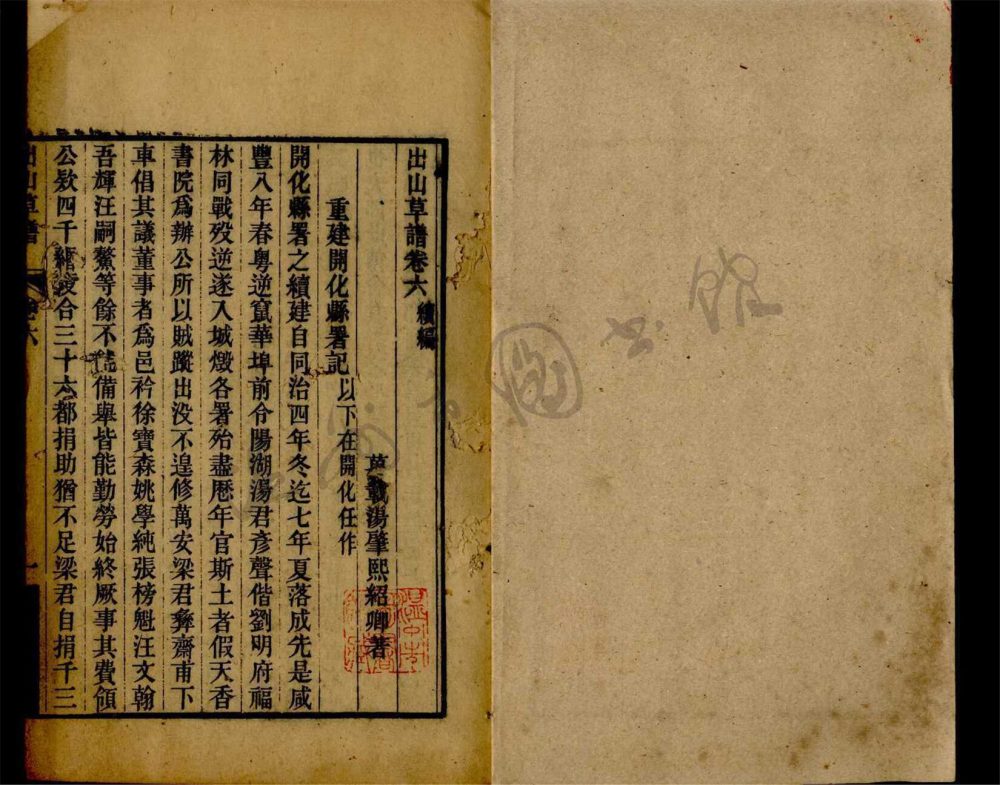 出山草譜卷六 續編
萬載湯肇熙紹卿著
重建開化縣署記 以下在開化任作
開化縣署之續建自同治四年冬迄七年夏落成先是咸
豐八年春粵逆竄華埠前令陽湖湯君彥聲偕劉明府福
林同戰歿逆遂入城燬各署殆盡厯年官斯土者假天香
書院爲辦公所以賊蹤出没不遑修萬安梁君彝齋甫下
車倡其議董事者爲邑衿徐寶森姚學純張榜魁汪文翰
吾輝汪嗣鰲等餘不備舉皆能勤勞始終厥事其費領
公欵四千緡合三十六都捐助猶不足梁君自捐千三
出山草譜 卷六 一